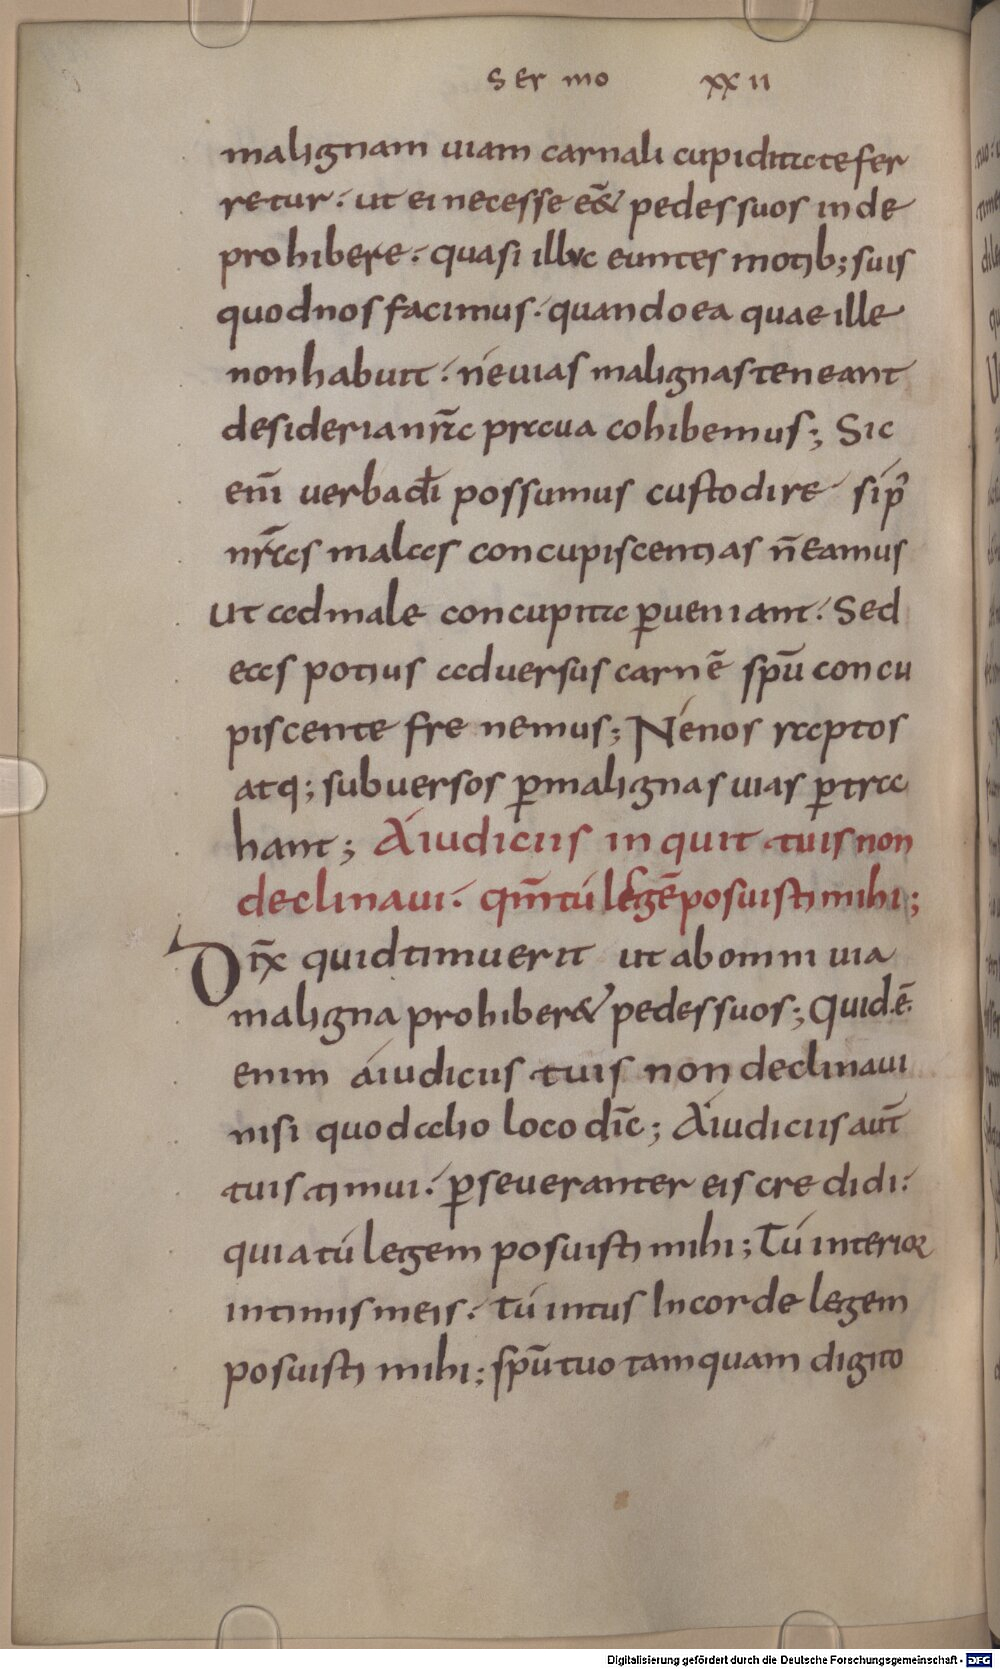 Sermo XXII
malignam uiam carnali cupiditate fer
retur. ut ei necesse ēẽ & pedes suos inde
prohibere. quasi illuc euntes motib; suis
quod nos facimus. quando ea quae ille
non habuit. né uias malignas teneant
desideria nr̄a praua cohibemus; Sic
eni̅ uerba di̅ possumus custodire si p̱
nr̄as malas concupiscentias n̄ eamus
ut ad male concupita ꝑueniant. Sed
eas potius aduersus carnē spū concu
piscente frenemus; Né nos raptos
atq; subuersos ꝑ malignas uias ꝑtra
hant; A iudiciis inquit tuis non
declinaui. qm̄ tú legē posuisti mihi;
Dix̄ quid timuerit ut ab omni uia
maligna prohiber& pedes suos; Quid .ē.
enim á iudiciis tuis non declinaui
nisi quod alio loco dic̄; Á iudiciis aut̄
tuis timui. ꝑseueranter eis credidi.
quia tú legem posuisti mihi; Tú interior
intimis meis. tú intus in corde legem
posuisti mihi; spū tuo tamquam digito
Digitalisierung gefördert durch die Deutsche Forschungsgemeinschaft - DFG